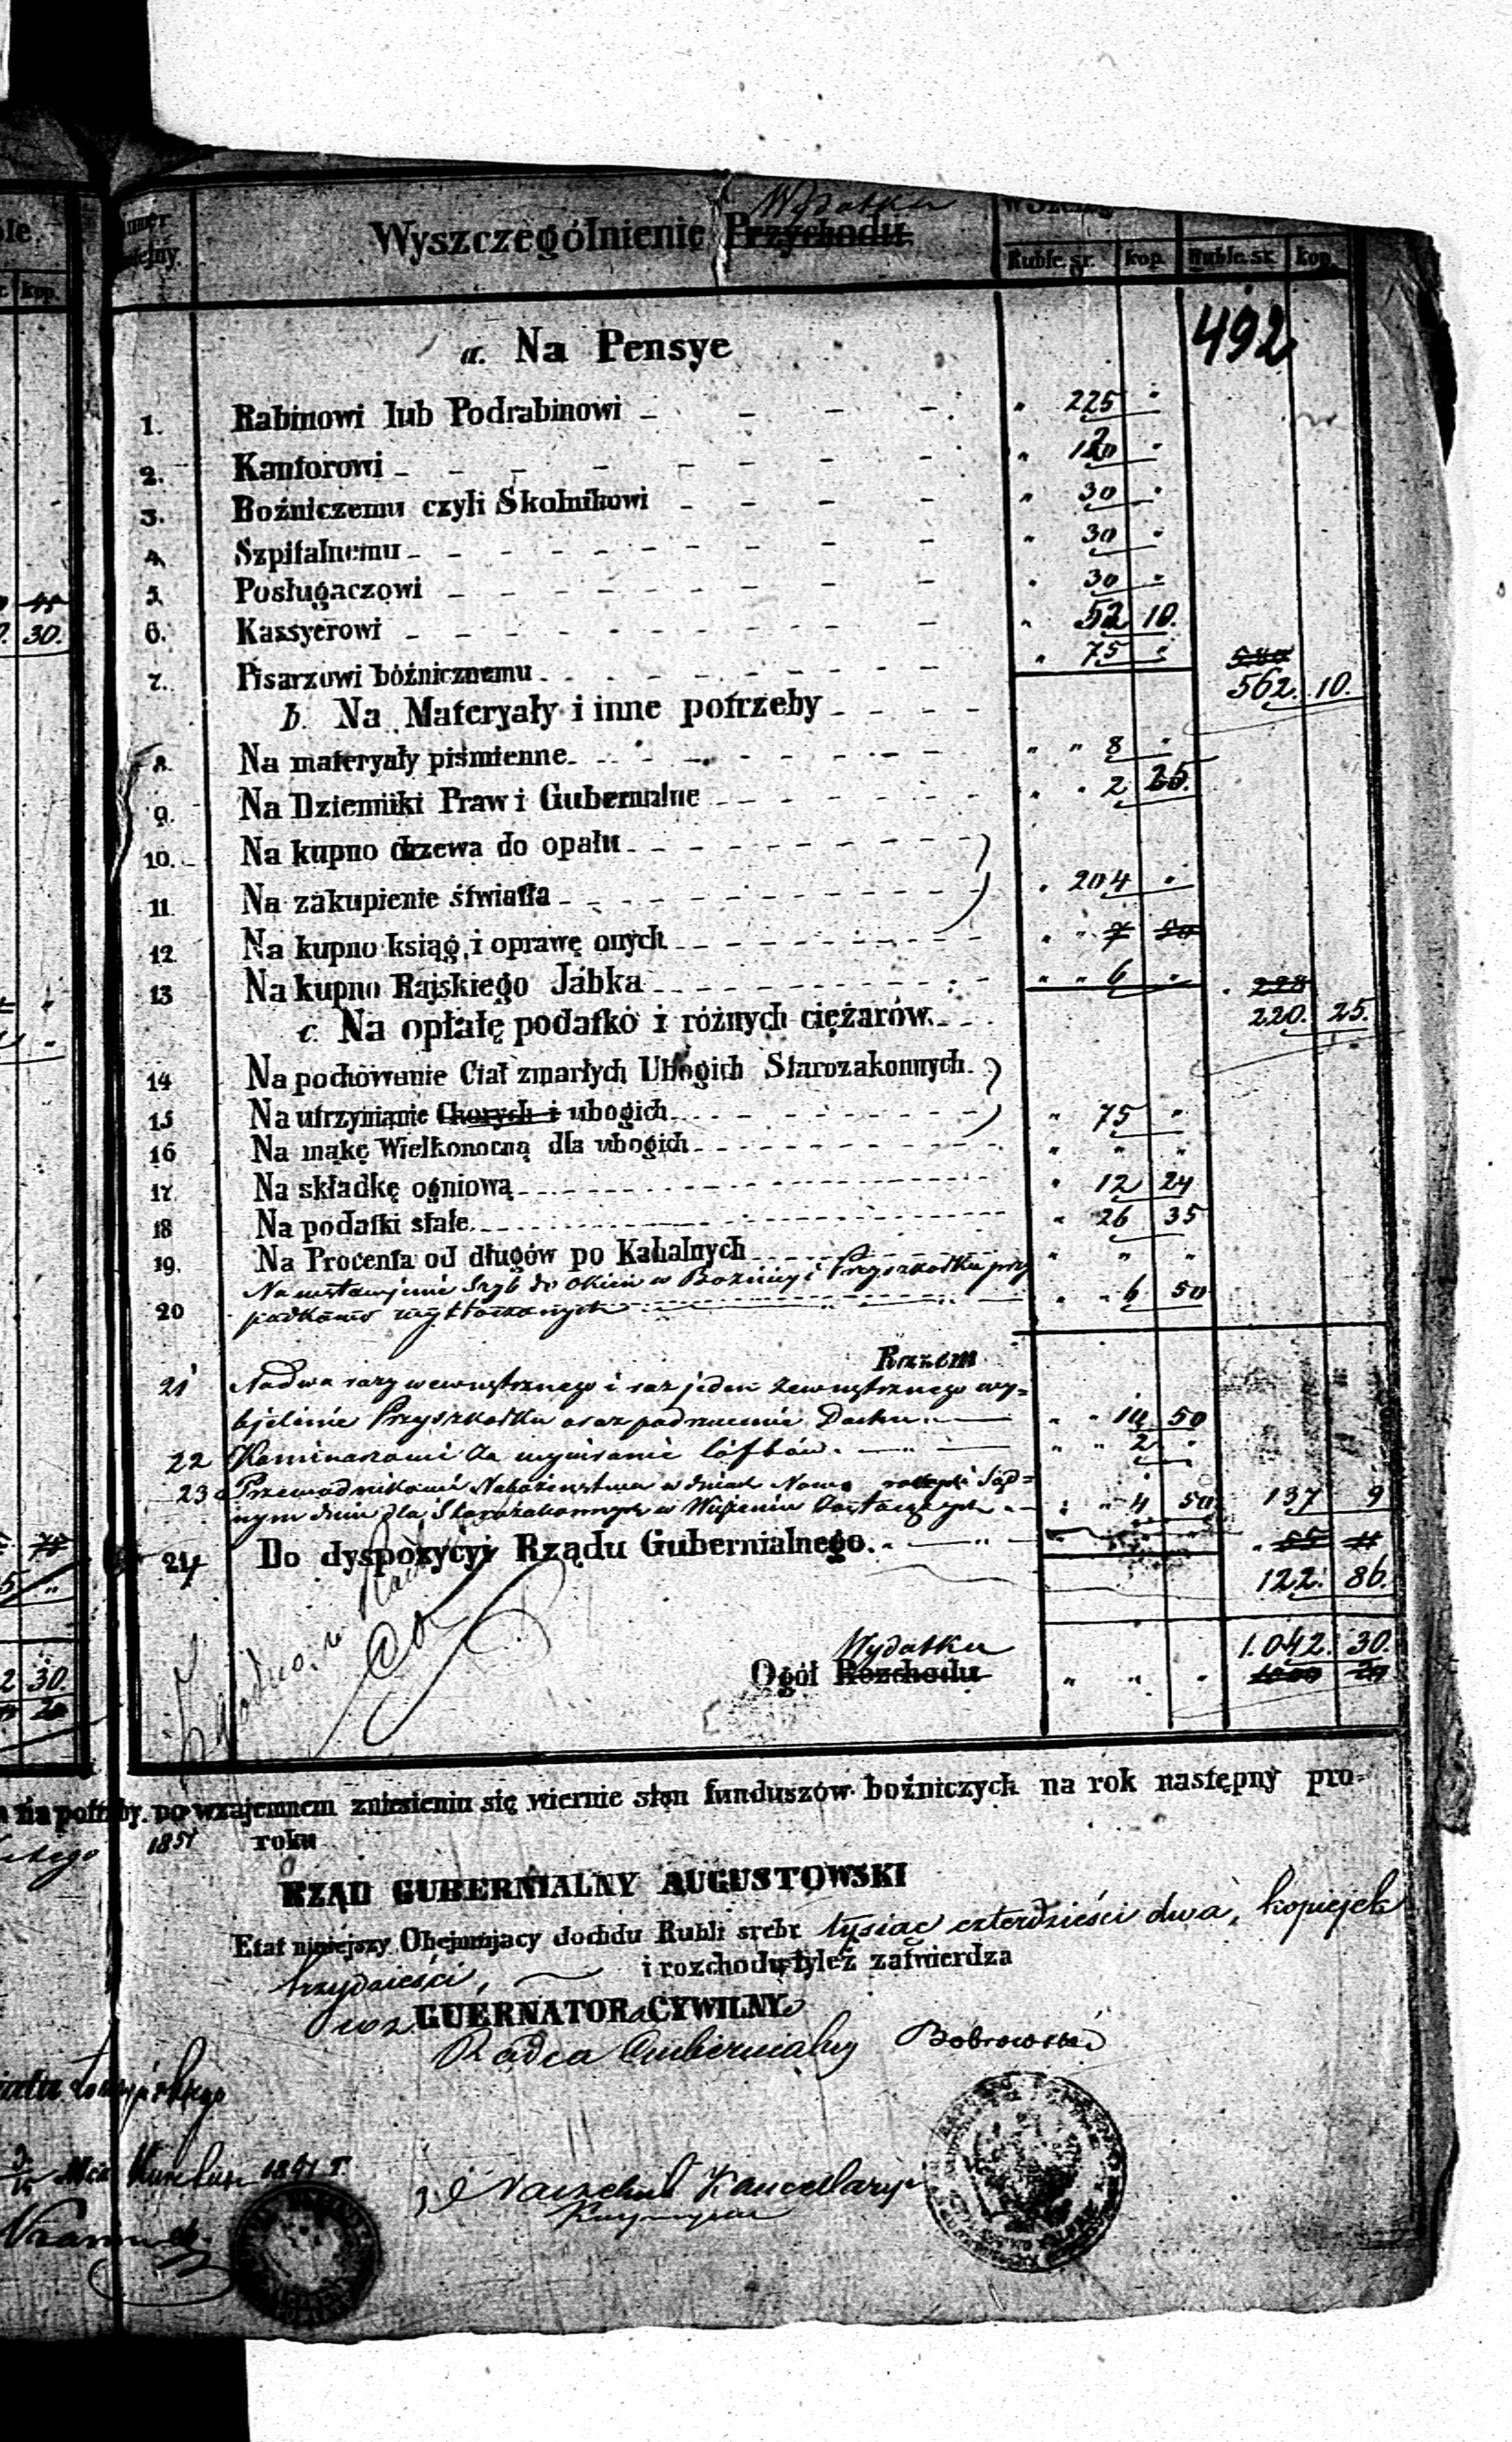 Wydatku
Wyszczególnienie Przychodu
Ruble sr. kop. Ruble sr. kop.
492
a. Na Pensye
1. Rabinowi lub Podrabinowi 225 "
2. Kantorowi 120 "
3. Bożniczemu czyli Skolnikowi 30 "
4. Szpitalnemu 30 "
5. Posługaczowi 30 "
6. Kassyerowi 52 10.
7. Pisarzowi bóżnicznemu 75 "
562. 10.
b. Na Materyały i inne potrzeby
8. Na materyały piśmienne 8 "
9. Na Dzienniki Praw i Gubernialne 2 25.
10. Na kupno drzewa do opału
11. Na zakupienie światła 204 "
12 Na kupno ksiąg i oprawę onych
13 Na kupno Rajskiego Jábka 6 "
220. 25.
c. Na opłatę podatkó i różnych ciężarów.
14 Na pochówanie Ciał zmarłych Ubogich Starozakonnych
15 Na utrzymanie Chorych i ubogich 75 "
16 Na mąkę Wielkonocną dla ubogich " "
17 Na składkę ogniową 12 24
18 Na podatki stałe 26 35
19. Na Procenta od długów po Kahalnych " "
Na wstawienie Szyb do okien w Bożnicy i Przyszkołku przy
20 padkowo wytłoczonych 6 50
Razem
21 Na dwa razy wewnętrznego i raz jeden zewnętrznego wy=
bielenie Przyszkołka oraz Dachu 14 50
22 Kominiarowi za 2 "
23 Nabożeństwa w dniach Nowo i Sąd=
nym dniu dla Starozakonnych w Więzieniu 4 50 137 9
24 Do dyspozycyi Rządu Gubernialnego.
122. 86.
Wydatku 1.042. 30.
Ogół Rozchodu
na potrzeby po wzajemnem zniesieniu się wiernie stan funduszów bożniczych na rok następny pro-
1851 roku
RZĄD GUBERNIALNY AUGUSTOWSKI
Etat niniejszy Obejmujacy dochdu Rubli srebr tysiąc czterdzieści dwa, kopiejek
trzydzieści, i rozchodu tyleż zatwierdza
GUERNATOR CYWILNY
Radca Gubernialny Bobrowski
1851 r.
Naczelnik Kancellaryi